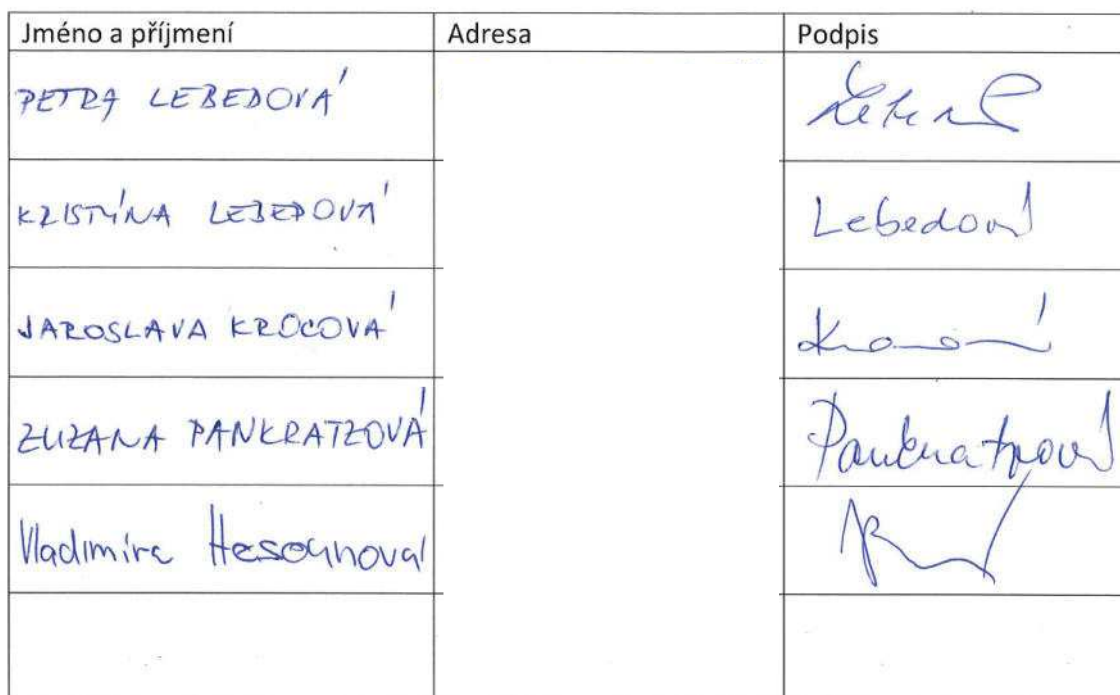 Jméno a příjmení Adresa Podpis
PETRA LEBEDOVÁ
KRISTÝNA LEBEDOVÁ Lebedová
JAROSLAVA KROCOVÁ
ZUZANA PANKRATZOVÁ Pankratzová
Vladimíra Hesounová